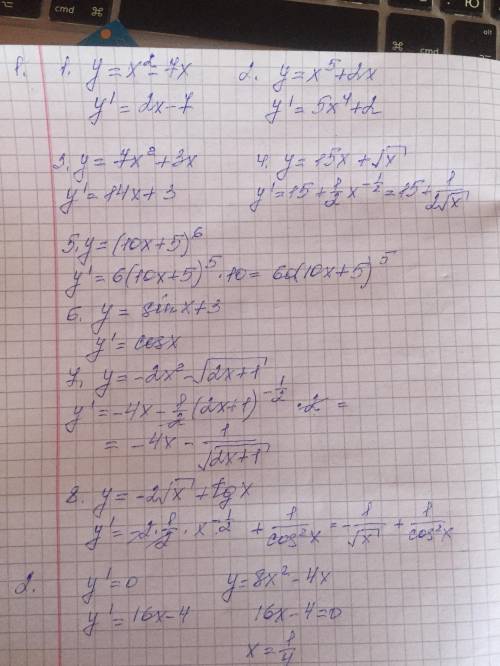 cmd
cmd
Ю
1. 1. y = x² - 7x 2. y = x⁵ + 2x
y' = 2x - 7 y' = 5x⁴ + 2
3. y = 7x² + 3x 4. y = 15x + √x
y' = 14x + 3 y' = 15 + 1/2 x^(-1/2) = 15 + 1/(2√x)
5. y = (10x + 5)⁶
y' = 6(10x + 5)⁵ · 10 = 60(10x + 5)⁵
6. y = sin x + 3
y' = cos x
7. y = -2x² - √(2x+1)
y' = -4x - 1/2 (2x+1)^(-1/2) · 2 =
= -4x - 1/√(2x+1)
8. y = -2√x + tg x
y' = -2 · 1/2 · x^(-1/2) + 1/cos²x = -1/√x + 1/cos²x
2. y' = 0 y = 8x² - 4x
y' = 16x - 4 16x - 4 = 0
x = 1/4